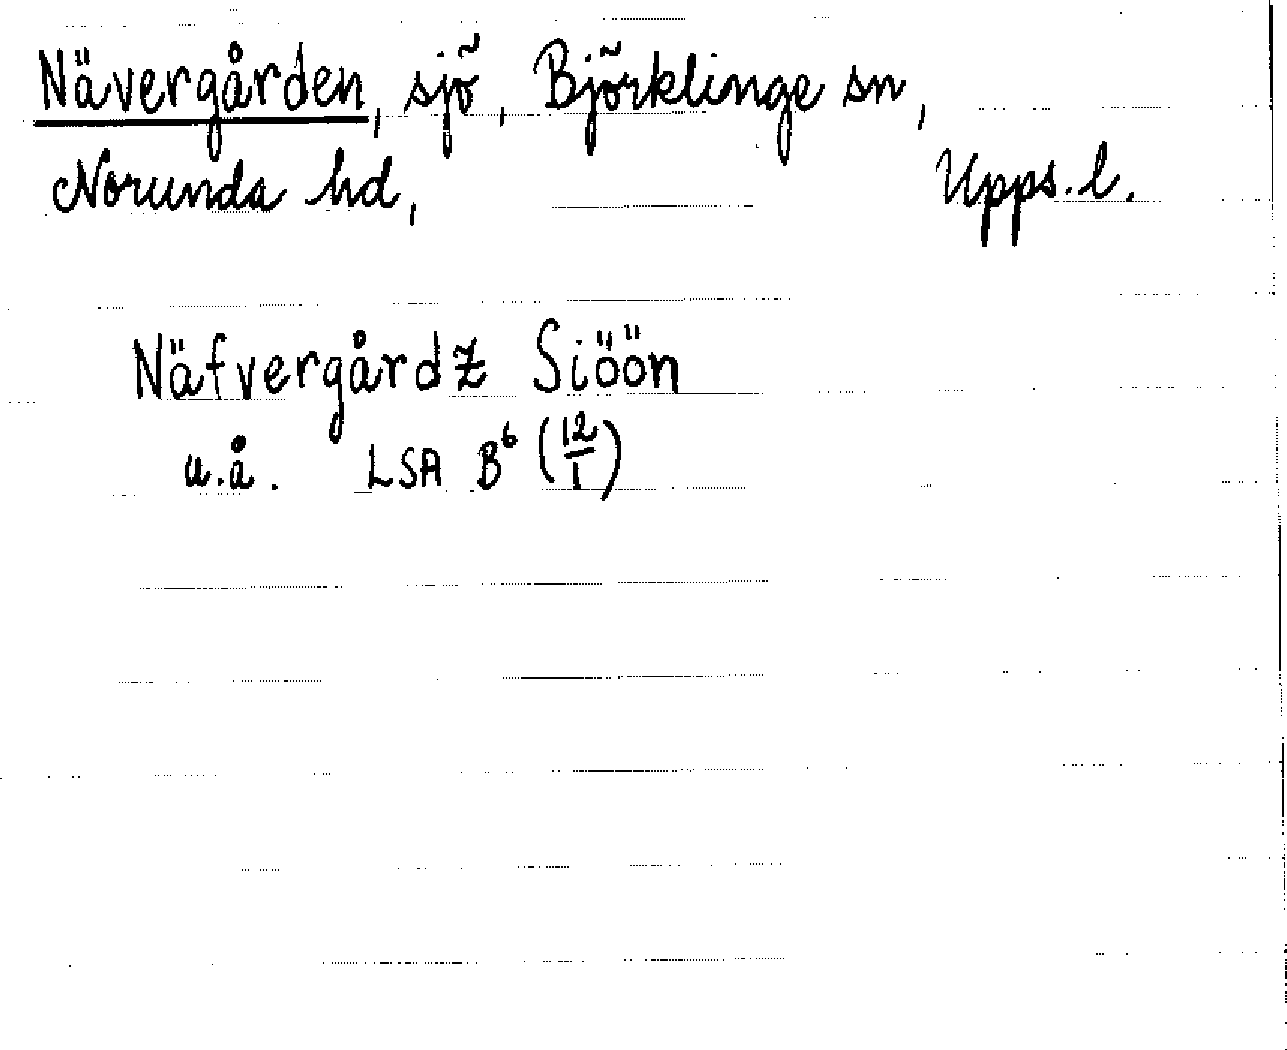 Nävergården, sjö, Björklinge sn,
Norunda hd, Upps. l.
Näfvergårdz Siöön
u.å. LSA B⁶ (12/1)